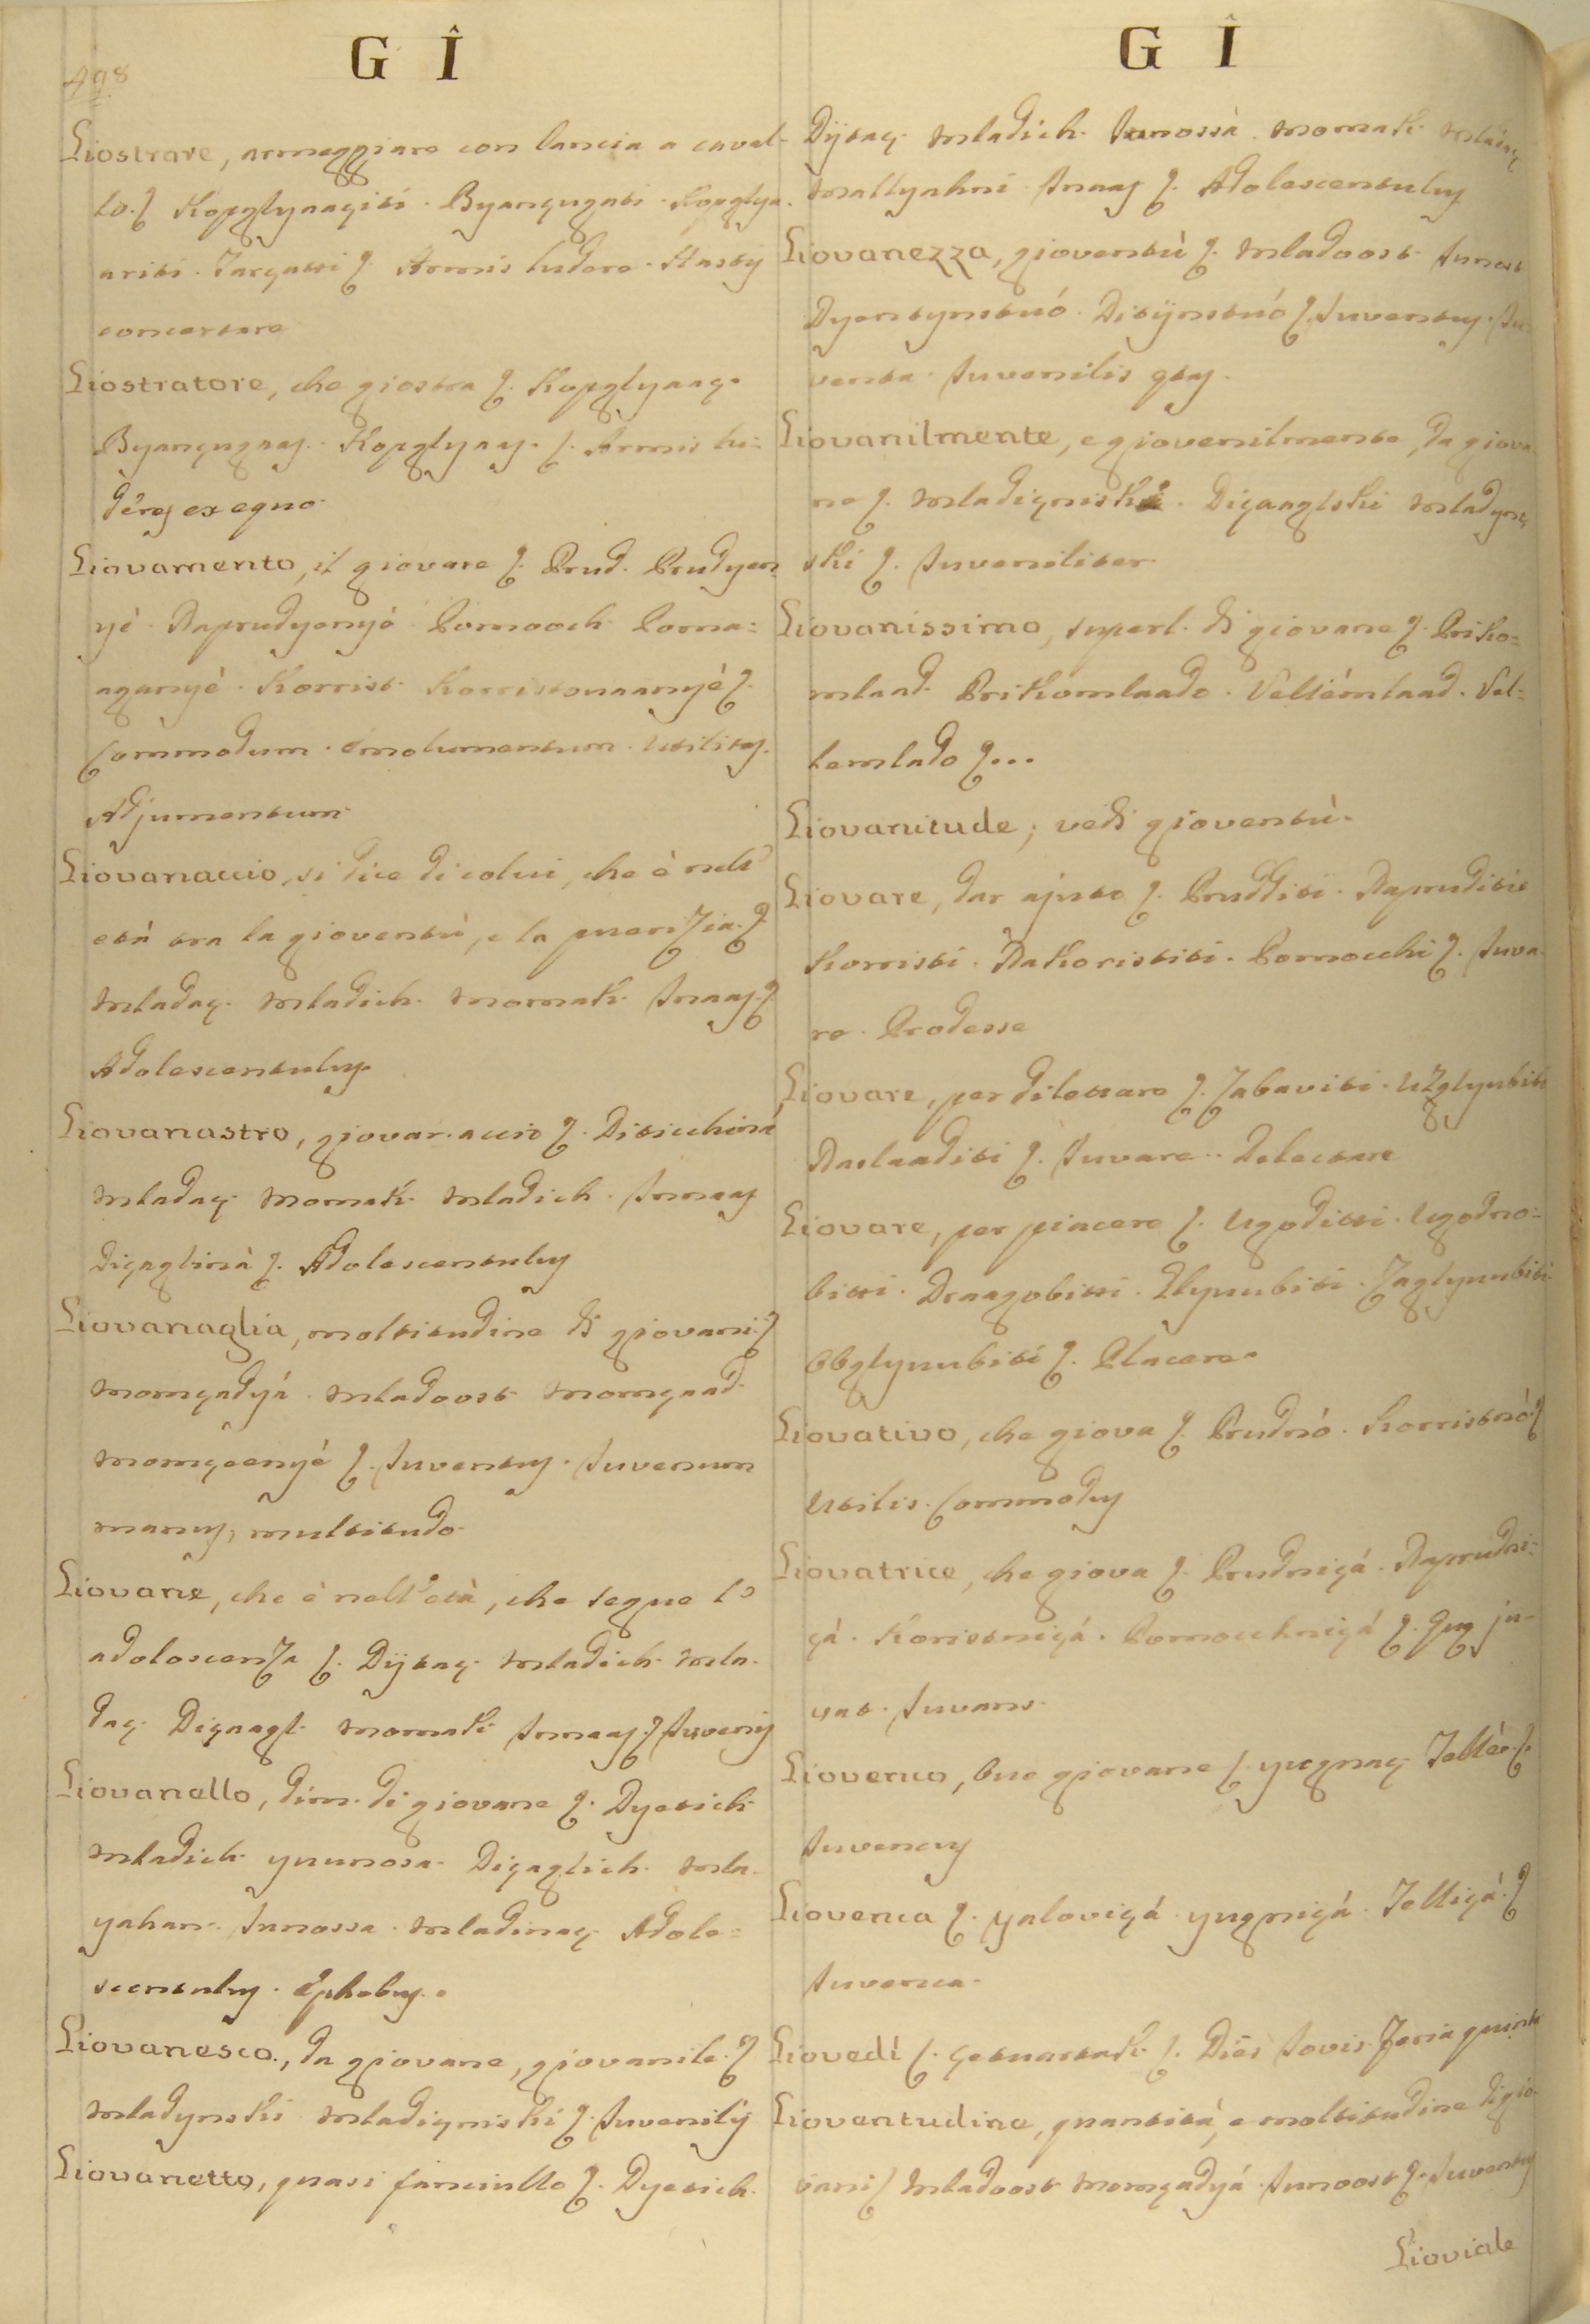 498
G Î
Giostrare, armeggiare con lancia a caval-
lo. ʃ. Kopglyaaçiti. Byançugati. Kopglya-
ariti. Tarçatti ʃ. Armis ludere. Hastis
concertare
Giostratore, che giostra ʃ. Kopglyaaç.
Byançugaas. Kopglyaas. ʃ. Armis lu=
dens ex equo.
Giovamento, il giovare ʃ. Prud. Prudyen
yè. Naprudyenyé. Pomooch. Poma=
aganyè. Korrist. Korristovaanyè ʃ.
Commodum. emolumentum. Utilitas.
Adjumentum.
Giovanaccio, si dice di colui, che è nell'
età tra la gioventù, e la puerizia. ʃ.
Mladaç. Mladich. Momak. Junaas. ʃ.
Adolescentulus.
Giovanastro, giovanaccio ʃ. Diticchinà
Mladaç. Momak. Mladich. Junaas
Diçaglinà ʃ. Adolescentulus
Giovanaglia, moltitudine di giovani. ʃ
Momçadyá. Mladoost. Momçaad.
Momçeenyé ʃ. Juventus. Juvenum
manus, multitudo.
Giovane, che è nell'età, che segue l'
adolescenza ʃ. Dÿtaç. Mladich. Mla-
daç. Diçaagl. Momak. Junaas. ʃ. Juvenis
Giovanello, dim. di giovane ʃ. Dyetich
Mladich. yuunosa. Diçaglich. Mla-
yahan. Junossa. Mladinaç. Adole=
scentulus. Ephebus.
Giovanesco., da giovane, giovanile. ʃ
Mladynski. Mladiçniski ʃ. Juvenilis
Giovanetto, quasi fanciullo ʃ. Dyetich.
G Î
Dÿtaç. Mladich. Junossà. Momak. Mladaç
Mallyahni. Junaas ʃ. Adolescentulus
Giovanezza, gioventù ʃ. Mladoost. Junost
Dyentynstuó. Ditÿnstuó ʃ. Juventus. Ju-
venta. Juvenilis ętas.
Giovanilmente, e giovenilmente, da giova-
ne ʃ. Mladiçniski. Diçaaglski Mladyn-
ski ʃ. Juveniliter.
Giovanissimo, superl. di giovane ʃ. Priko=
mlaad. Prikomlaado. Vellémlaad. Vel=
lemlado ʃ...
Giovanitude, vedi gioventù.
Giovare, dar ajuto ʃ. Prudditi. Napruditi
Korristi. Nakoristiti. Pomocchi ʃ. Juva-
re. Prodesse
Giovare, per dilettare ʃ. Zabaviti. Uzglyubiti
Naslaaditi ʃ. Juvare. Delectare
Giovare, per piacere ʃ. Ugoditti. Ugodno=
bitti. Draagobitti. Glyuubiti. Zaglyuubiti
Obglyuubiti ʃ. Placere.
Giovativo, che giova ʃ. Prudnó. Korristnó. ʃ
Utilis. Commodus
Giovatrice, che giova ʃ. Prudniçá. Naprudni=
çá. Koristniçá. Pomocchniçá ʃ. Quę ju-
vat. Juvans.
Giovenco, bue giovane ʃ. yugnaç. Tellèe ʃ.
Juvencus
Giovenca ʃ. yaloviçá yugniçá. Telliçá. ʃ
Juvenca.
Giovedì ʃ. Çetuartak. ʃ. Dies Jovis. Feria quinta
Gioventudine, quantità, e moltitudine di gio-
vani ʃ Mladoost Momçadyá. Junoost ʃ. Juventus
Gioviale